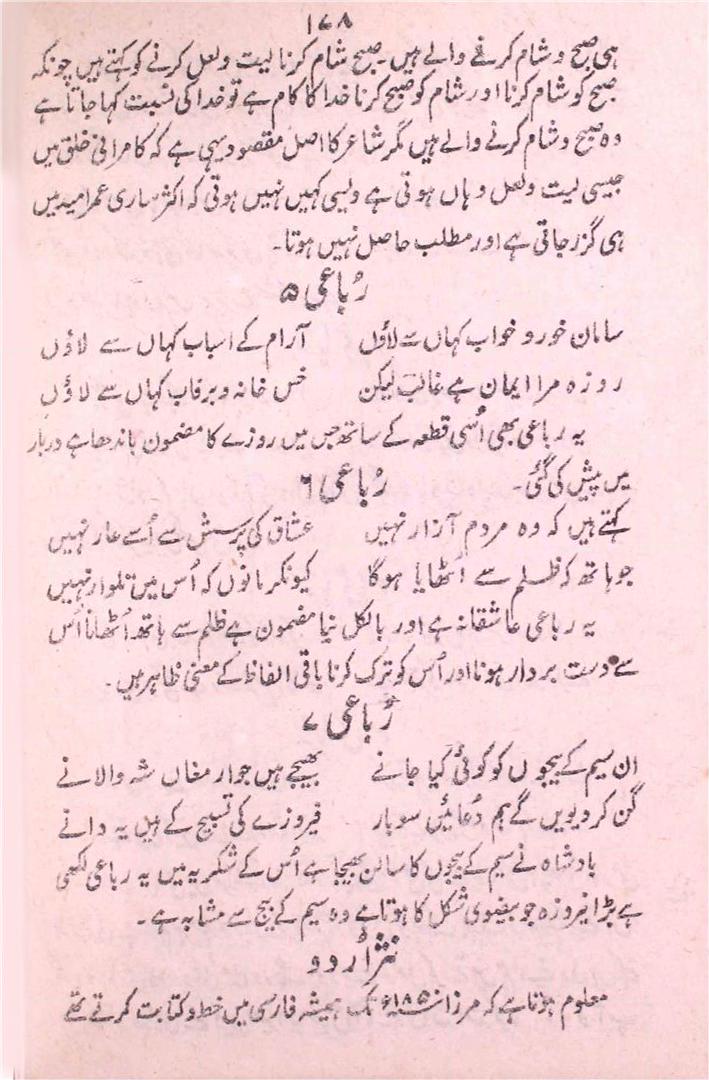 ۱۷۸
ہی صبح و شام کرنے والے ہیں۔ صبح شام کرنا لیت ولعل کرنے کو کہتے ہیں چونکہ
صبح کو شام کرنا اور شام کو صبح کرنا خدا کا کام ہے تو خدا کی نسبت کہا جاتا ہے
وہ صبح و شام کرنے والے ہیں مگر شاعر کا اصل مقصود یہی ہے کہ کامرانی خلق میں
جیسی لیت ولعل وہاں ہوتی ہے ویسی کہیں نہیں ہوتی کہ اکثر ساری عمر امید میں
ہی گزر جاتی ہے اور مطلب حاصل نہیں ہوتا۔
رُباعی ۵
سامان خور و خواب کہاں سے لاؤں آرام کے اسباب کہاں سے لاؤں
روزہ مرا ایمان ہے غالبؔ لیکن خس خانہ و برفاب کہاں سے لاؤں
یہ رباعی بھی اُسی قطعہ کے ساتھ جس میں روزے کا مضمون باندھا ہے دربار
میں پیش کی گئی۔
رُباعی ۶
کہتے ہیں کہ وہ مردم آزار نہیں عشاق کی پرسش سے اُسے عار نہیں
جو ہاتھ کہ ظلم سے اُٹھایا ہوگا کیونکر مانوں کہ اُس میں تلوار نہیں
یہ رباعی عاشقانہ ہے اور بالکل نیا مضمون ہے ظلم سے ہاتھ اُٹھانا اُس
سے دست بردار ہونا اور اُس کو ترک کرنا باقی الفاظ کے معنی ظاہر ہیں۔
رُباعی ۷
ان سیم کے بیجوں کو کوئی کیا جانے بھیجے ہیں جو ارمغاں شہ والا نے
گن کر دیویں گے ہم دُعائیں سو بار فیروزے کی تسبیح کے ہیں یہ دانے
بادشاہ نے سیم کے بیجوں کا سالن بھیجا ہے اُس کے شکریہ میں یہ رباعی لکھی
ہے بڑا فیروزہ جو بیضوی شکل کا ہوتا ہے وہ سیم کے بیج سے مشابہ ہے۔
نثر اُردو
معلوم ہوتا ہے کہ مرزا ۱۸۵۰ء تک ہمیشہ فارسی میں خط و کتابت کرتے تھے